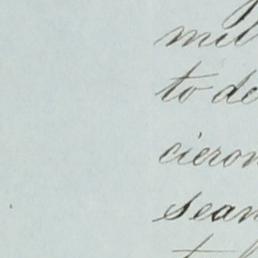 mil
to de
cieron
sean